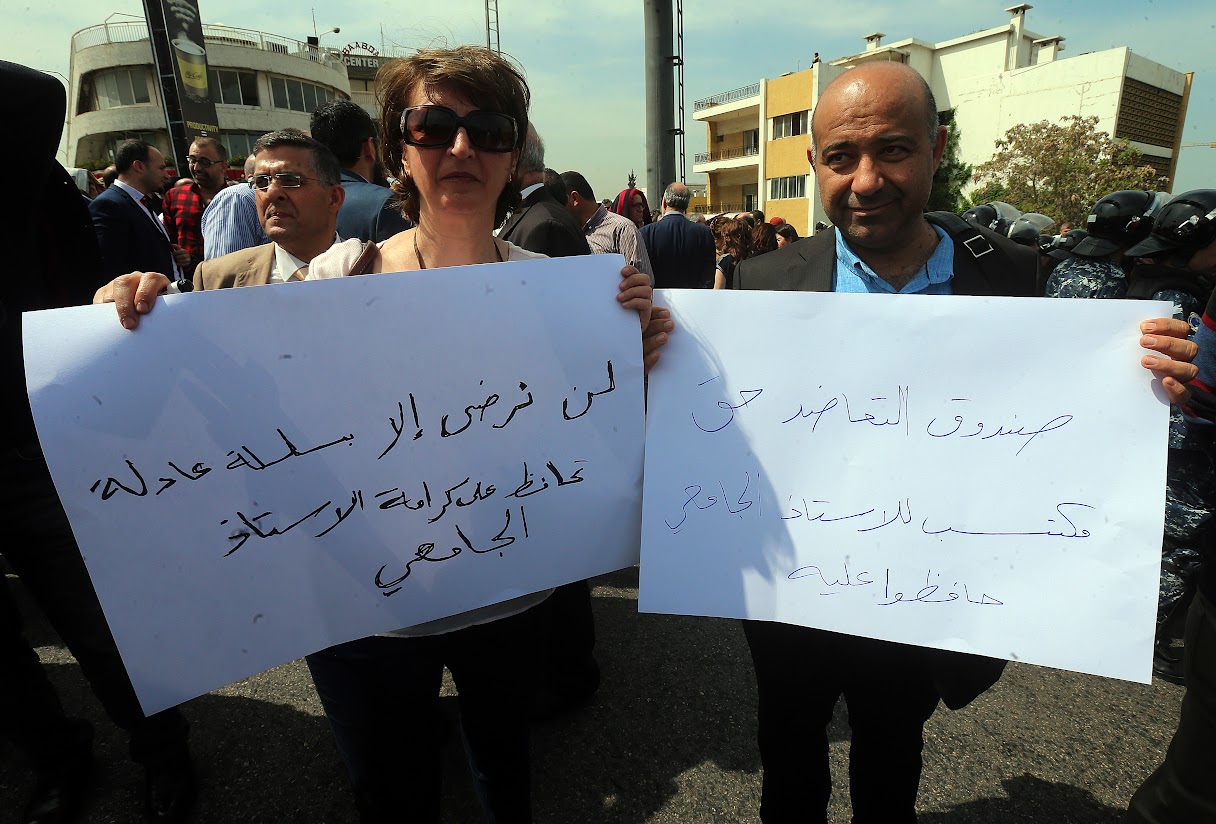 BAABDA
CENTER
PRODUCTIVITY
لن نرضى إلا بسلسلة عادلة
تحافظ على كرامة الاستاذ
الجامعي
صندوق التعاضد حق
مكتسب للاستاذ الجامعي
حافظوا عليه